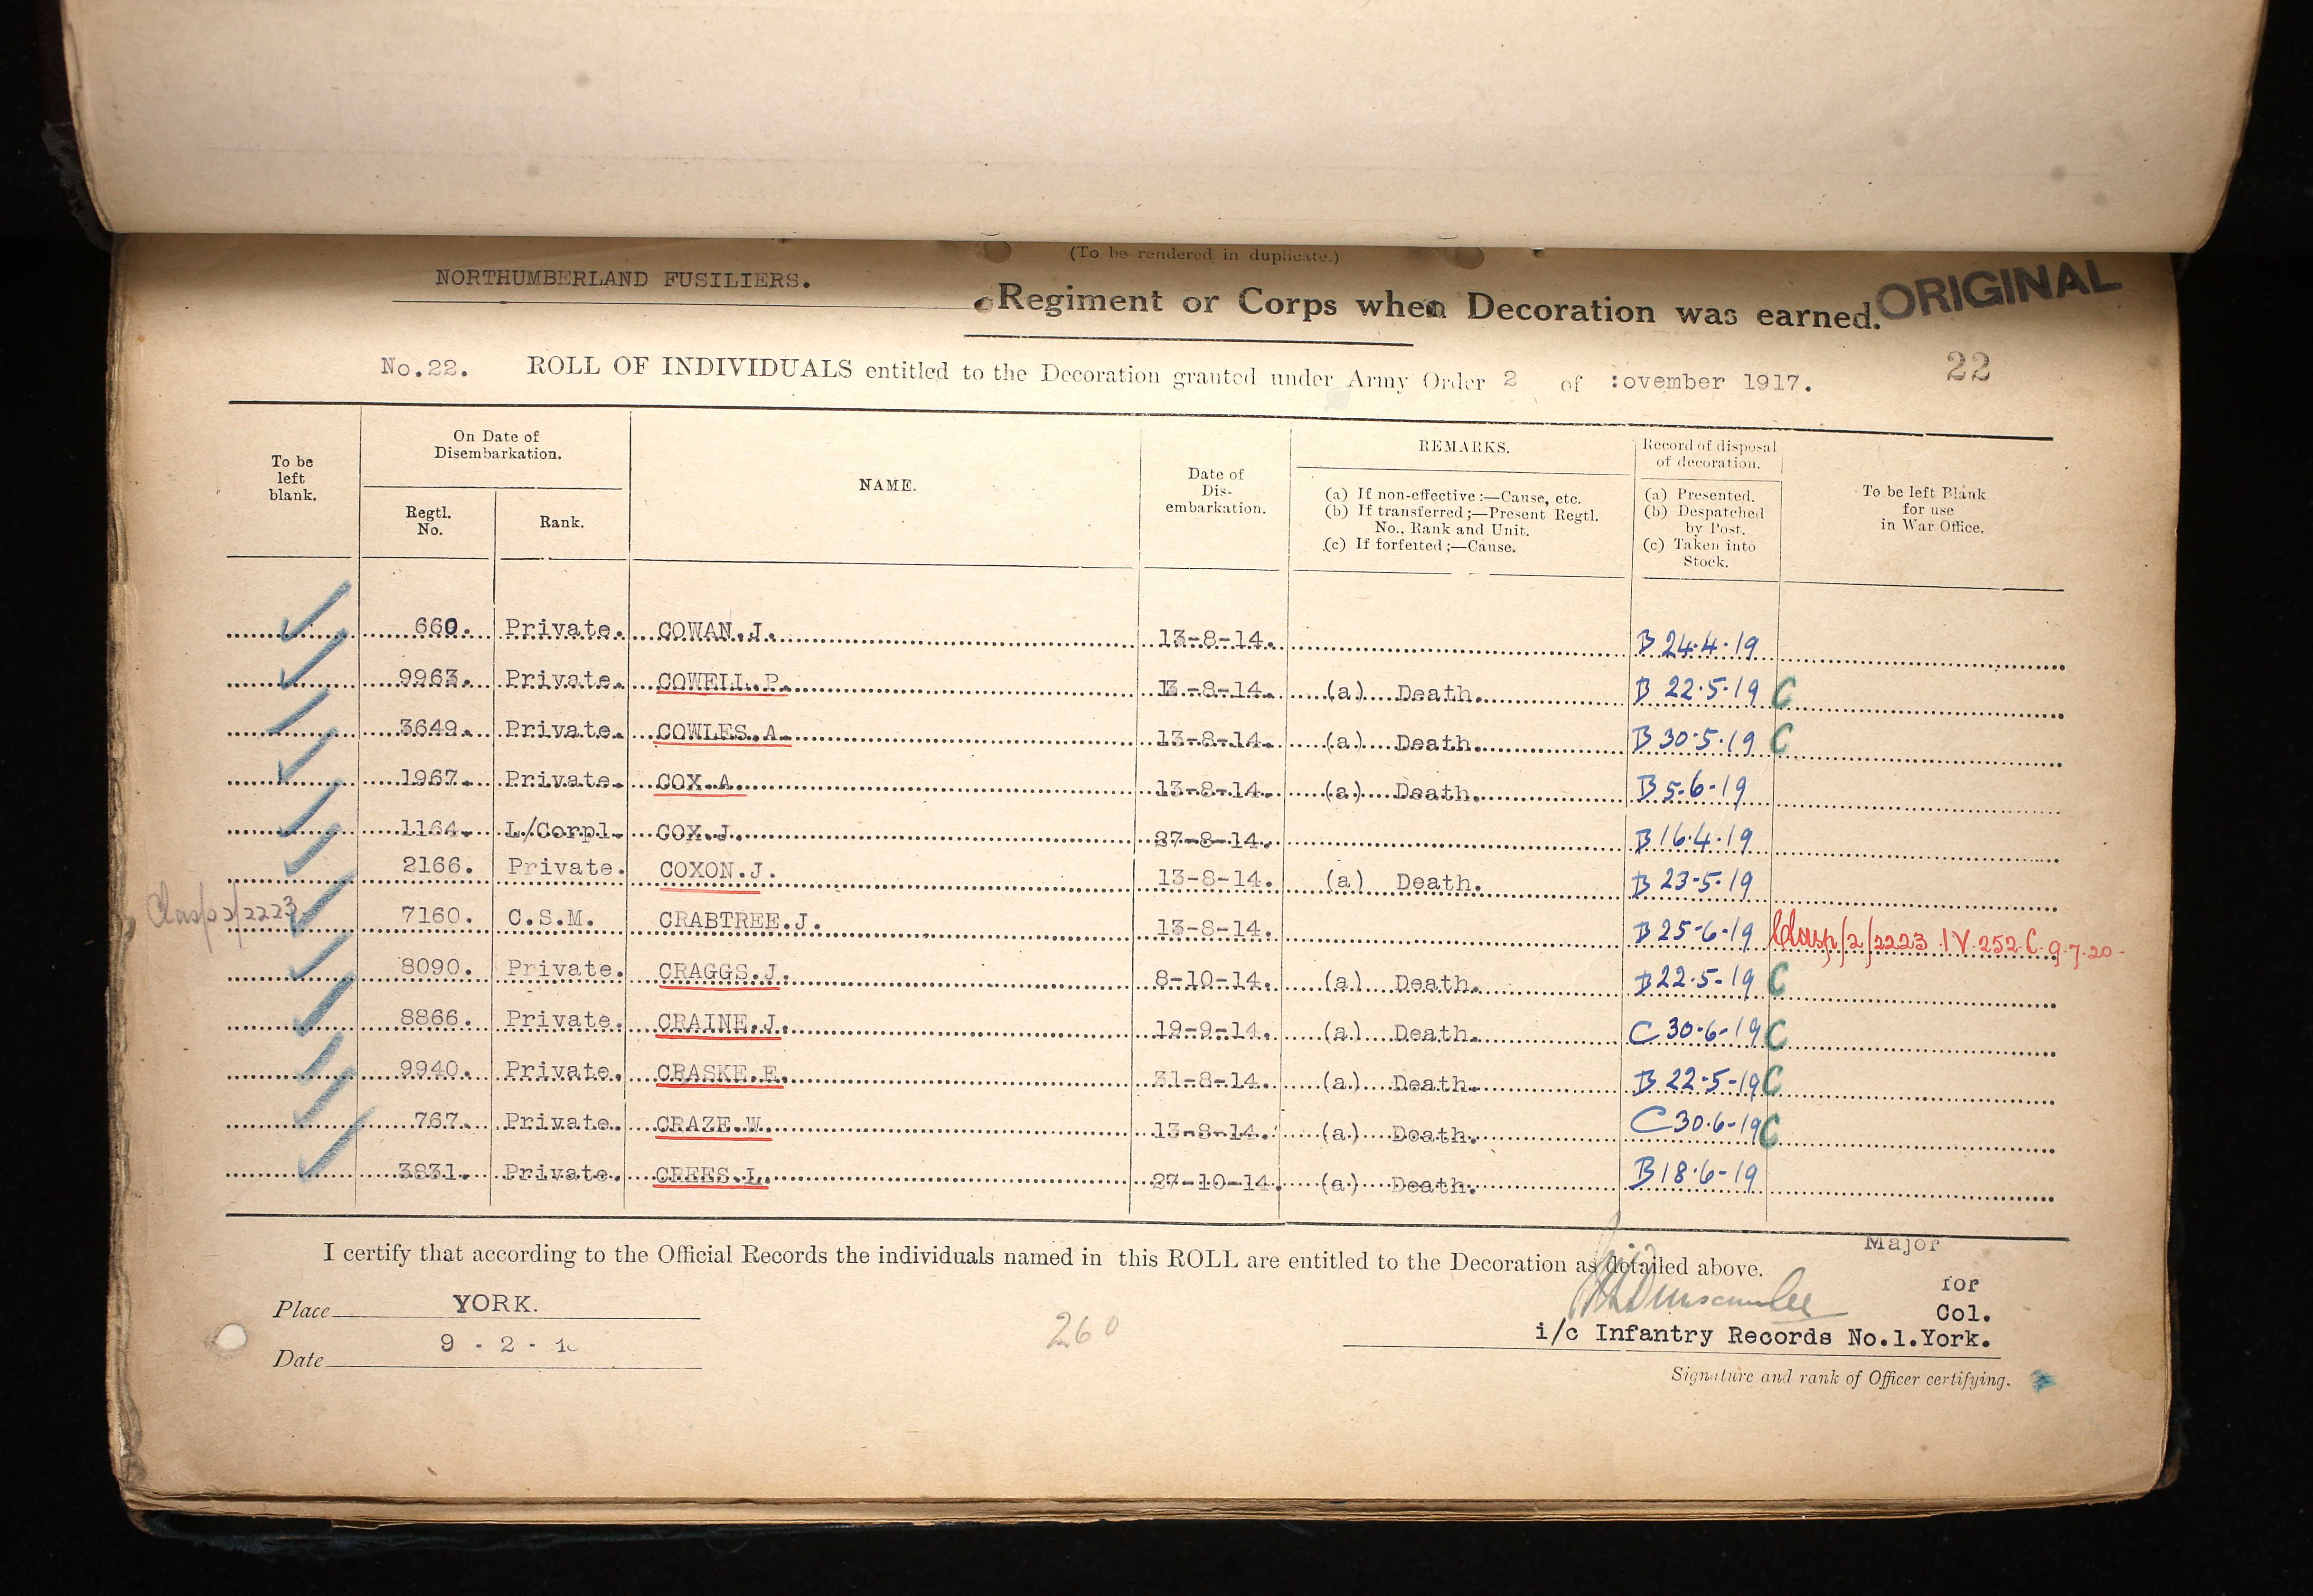 (To be rendered in duplicate.)
NORTHUMBERLAND FUSILIERS.
Regiment or Corps when Decoration was earned.
ORIGINAL
No.22. ROLL OF INDIVIDUALS entitled to the Decoration granted under Army Order 2 of :ovember 1917.
22
To be left blank.
On Date of Disembarkation.
Regtl. No.
Rank.
NAME.
Date of Dis-embarkation.
REMARKS.
(a) If non-effective :—Cause, etc.
(b) If transferred ;—Present Regtl. No., Rank and Unit.
(c) If forfeited ;—Cause.
Record of disposal of decoration.
(a) Presented.
(b) Despatched by Post.
(c) Taken into Stock.
To be left Blank for use in War Office.
660. Private. COWAN.J. 13-8-14. B 24.4.19
9963. Private. COWELL.P. 13-8-14. (a) Death. B 22.5.19 C
3649. Private. COWLES.A. 13-8-14. (a) Death. B 30.5.19 C
1967. Private. COX.A. 13-8-14. (a) Death. B 5-6-19
1164. L/Corpl. COX.J. 27-8-14. B 16.4.19
2166. Private. COXON.J. 13-8-14. (a) Death. B 23-5-19
Clasp 2/2223 7160. C.S.M. CRABTREE.J. 13-8-14. B 25-6-19 Clasp/2/2223 IV.252.C.9.7.20-
8090. Private. CRAGGS.J. 8-10-14. (a) Death. B 22.5-19 C
8866. Private. CRAINE.J. 19-9-14. (a) Death. C 30-6-19 C
9940. Private. CRASKE.E. 31-8-14. (a) Death. B 22-5-19 C
767. Private. CRAZE.W. 13-8-14. (a) Death. C 30.6-19 C
3831. Private. CREES.L. 27-10-14. (a) Death. B 18.6-19
I certify that according to the Official Records the individuals named in this ROLL are entitled to the Decoration as detailed above.
Major
for
Col.
Place YORK.
i/c Infantry Records No.1.York.
Date 9 - 2 -
260
Signature and rank of Officer certifying.